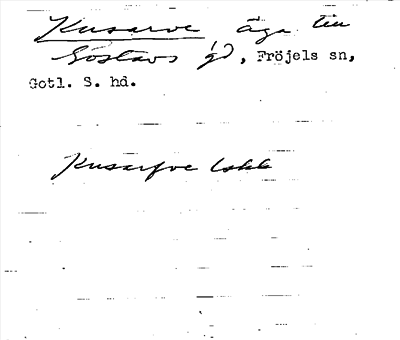 Kusarve, äga till
Gostavs gd, Fröjels sn,
Gotl. S. hd.
Kusarfve